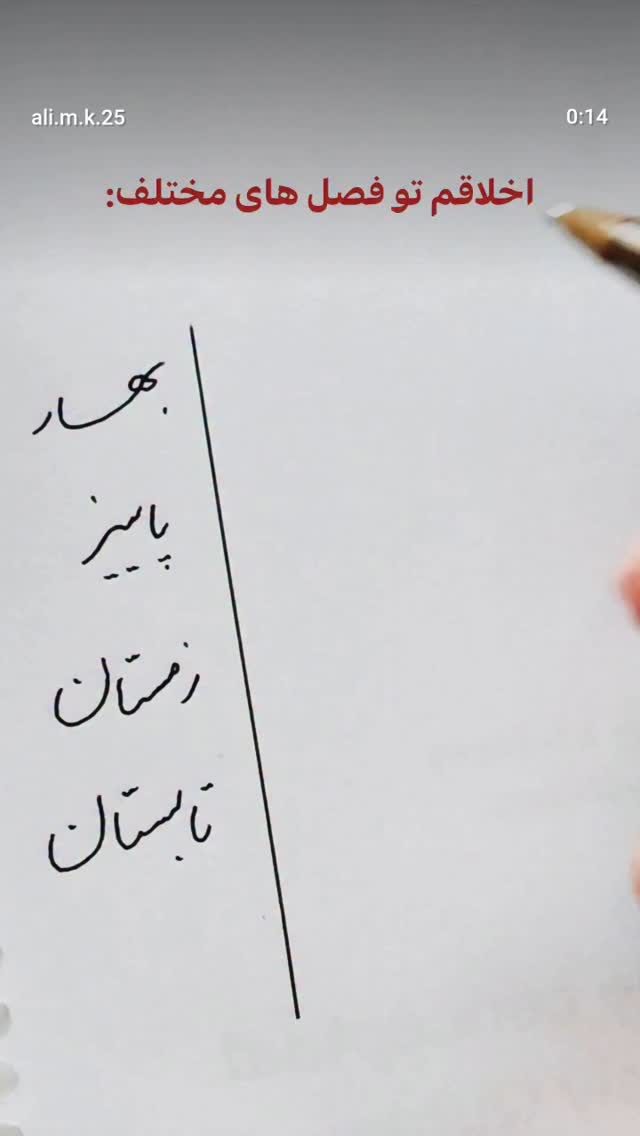 ali.m.k.25
0:14
اخلاقم تو فصل های مختلف:
بهار
پاییز
زمستان
تابستان